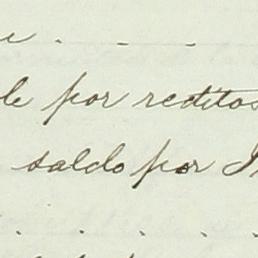 le por reditos
saldo por